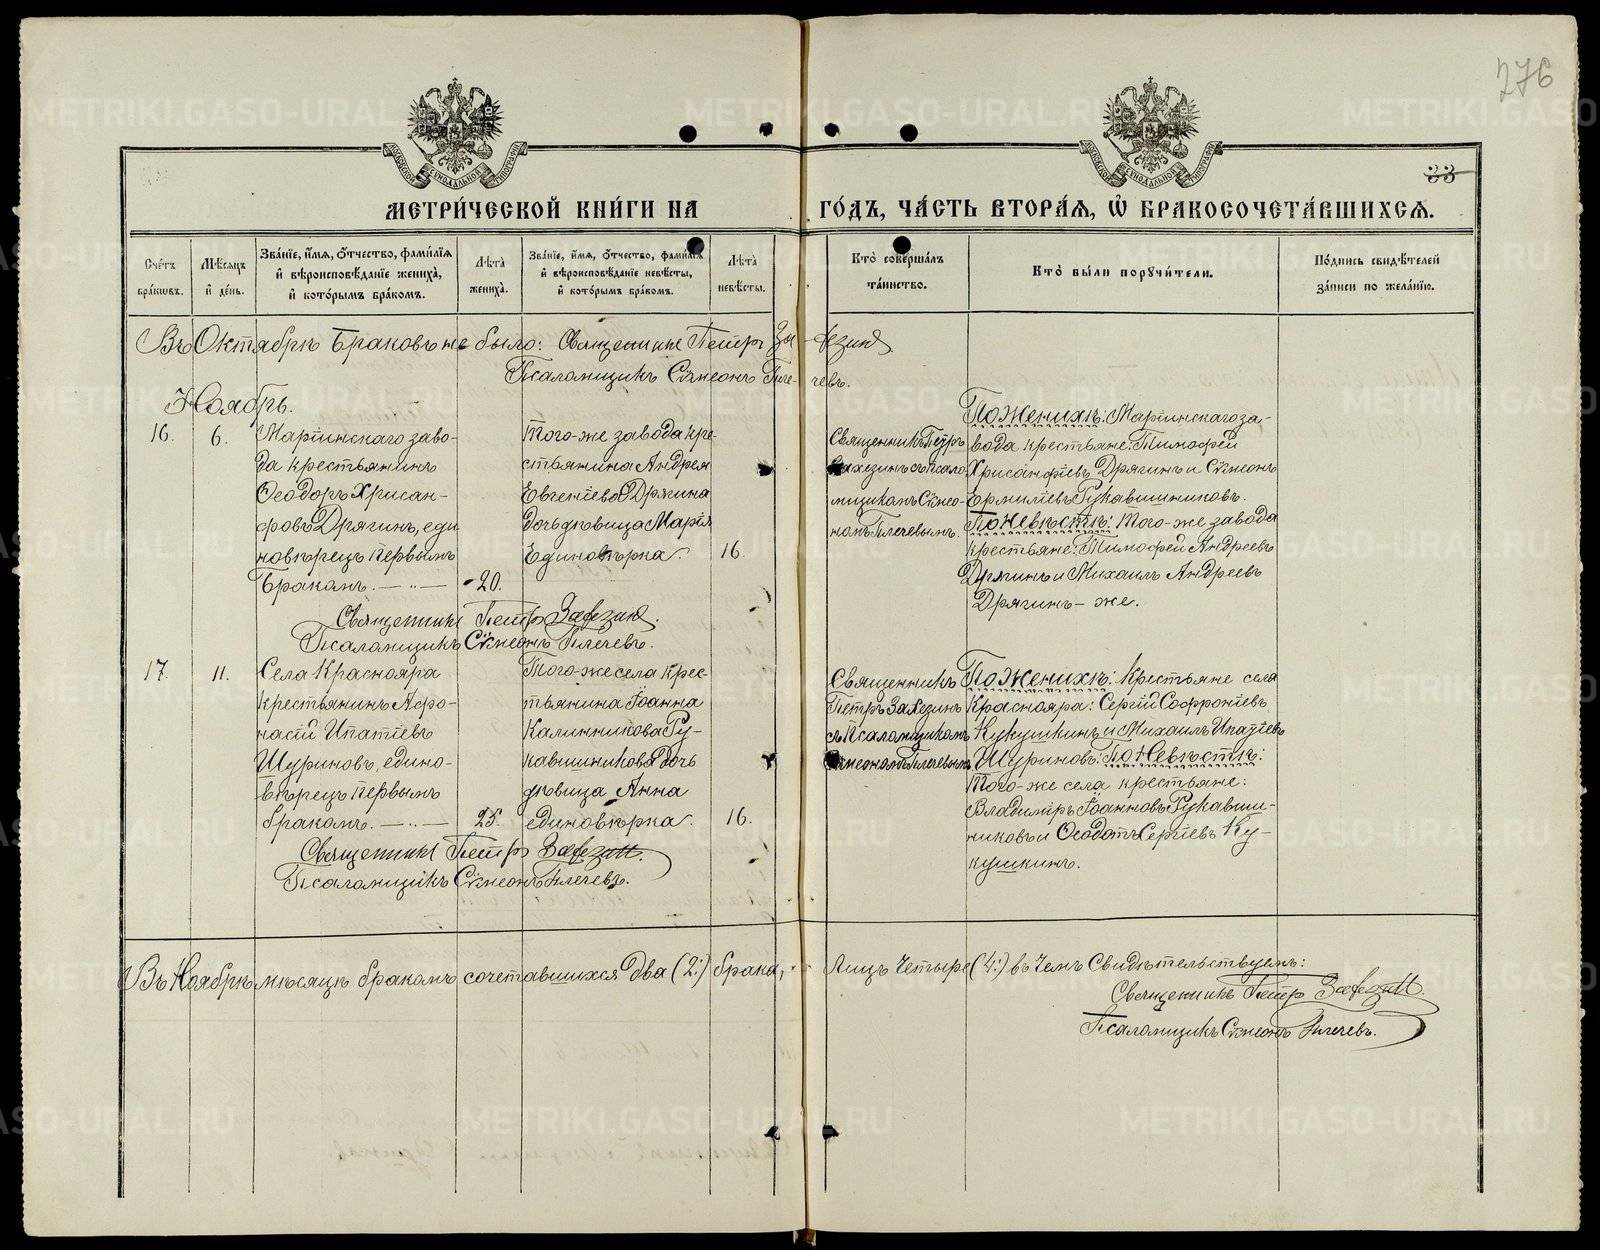 276
33
МОСКОВСКОЙ СѴНОДАЛЬНОЙ ТИПОГРАФІИ
МОСКОВСКОЙ СѴНОДАЛЬНОЙ ТИПОГРАФІИ
МЕТРИ́ЧЕСКОЙ КНИ́ГИ НА
ГО́ДЪ, ЧА́СТЬ ВТОРА́Я, Ѽ БРАКОСОЧЕТА́ВШИХСЯ.
Сче́тъ
бра́кѡвъ.
Мѣ́сяцъ
и҆ де́нь.
Зва́нїе, и҆́мя, ѻ҆́тчество, фами́лїя
и҆ вѣроисповѣ́данїе жениха̀,
и҆ кото́рымъ бра́комъ.
Лѣ́та
жениха̀.
Зва́нїе, и҆́мя, ѻ҆́тчество, фами́лїя
и҆ вѣроисповѣ́данїе невѣ́сты,
и҆ кото́рымъ бра́комъ.
Лѣ́та
невѣ́сты.
Кто̀ соверша́лъ
та́инство.
Кто̀ бы́ли порꙋчи́тели.
По́дпись свидѣ́телей
за́писи по жела́нїю.
Въ Октябрѣ браковъ не было: Священникъ Петръ
Псаломщикъ Сѵмеонъ Плечевъ.
Ноябрь.
16.
6.
Маріинскаго заво-
да крестьянинъ
Ѳеодоръ Хрисан-
фовъ Дрягинъ, еди
новѣрецъ первымъ
бракомъ. — „ —
20.
Того-же завода кре-
стьянина Андрея
Евгеніева Дрягина
дочь дѣвица Марія
Единовѣрка.
16.
Священникъ Петръ
Захезинъ съ псало
мщикомъ Сѵмео-
номъ Плечевымъ.
По Женихѣ: Маріинскаго за-
вода крестьяне: Тимофей
Хрисанфіевъ Дрягинъ и Сѵмеонъ
Ермиліевъ Рукавишниковъ.
По Невѣстѣ: Того-же завода
крестьяне: Тимофей Андреевъ
Дрягинъ и Михаилъ Андреевъ
Дрягинъ-же.
Священникъ Петръ Захезинъ.
Псаломщикъ Сѵмеонъ Плечевъ.
17.
11.
Села Краснояра
крестьянинъ Афо-
насій Ипатіевъ
Шуриновъ, едино-
вѣрецъ первымъ
бракомъ. — „ —
25.
Того-же села крес-
тьянина Іоанна
Калинникова Ру-
кавишникова дочь
дѣвица Анна
единовѣрка.
16.
Священникъ
Петръ Захезинъ
съ Псаломщикомъ
Сѵмеономъ Плечевымъ
По Женихѣ: Крестьяне села
Краснояра: Сергій Софроніевъ
Кукушкинъ и Михаилъ Ипатіевъ
Шуриновъ. По Невѣстѣ:
Того-же села крестьяне:
Владиміръ Іоанновъ Рукавиш-
никовъ и Ѳеодотъ Сергіевъ Ку-
кушкинъ.
Священникъ Петръ Захезинъ.
Псаломщикъ Сѵмеонъ Плечевъ.
Въ Ноябрѣ мѣсяцѣ бракомъ сочетавшихся два (2:) брака, Лицъ Четыре (4:) въ чемъ Свидѣтельствуемъ:
Священникъ Петръ Захезинъ.
Псаломщикъ Сѵмеонъ Плечевъ.
METRIKI.GASO-URAL.RU